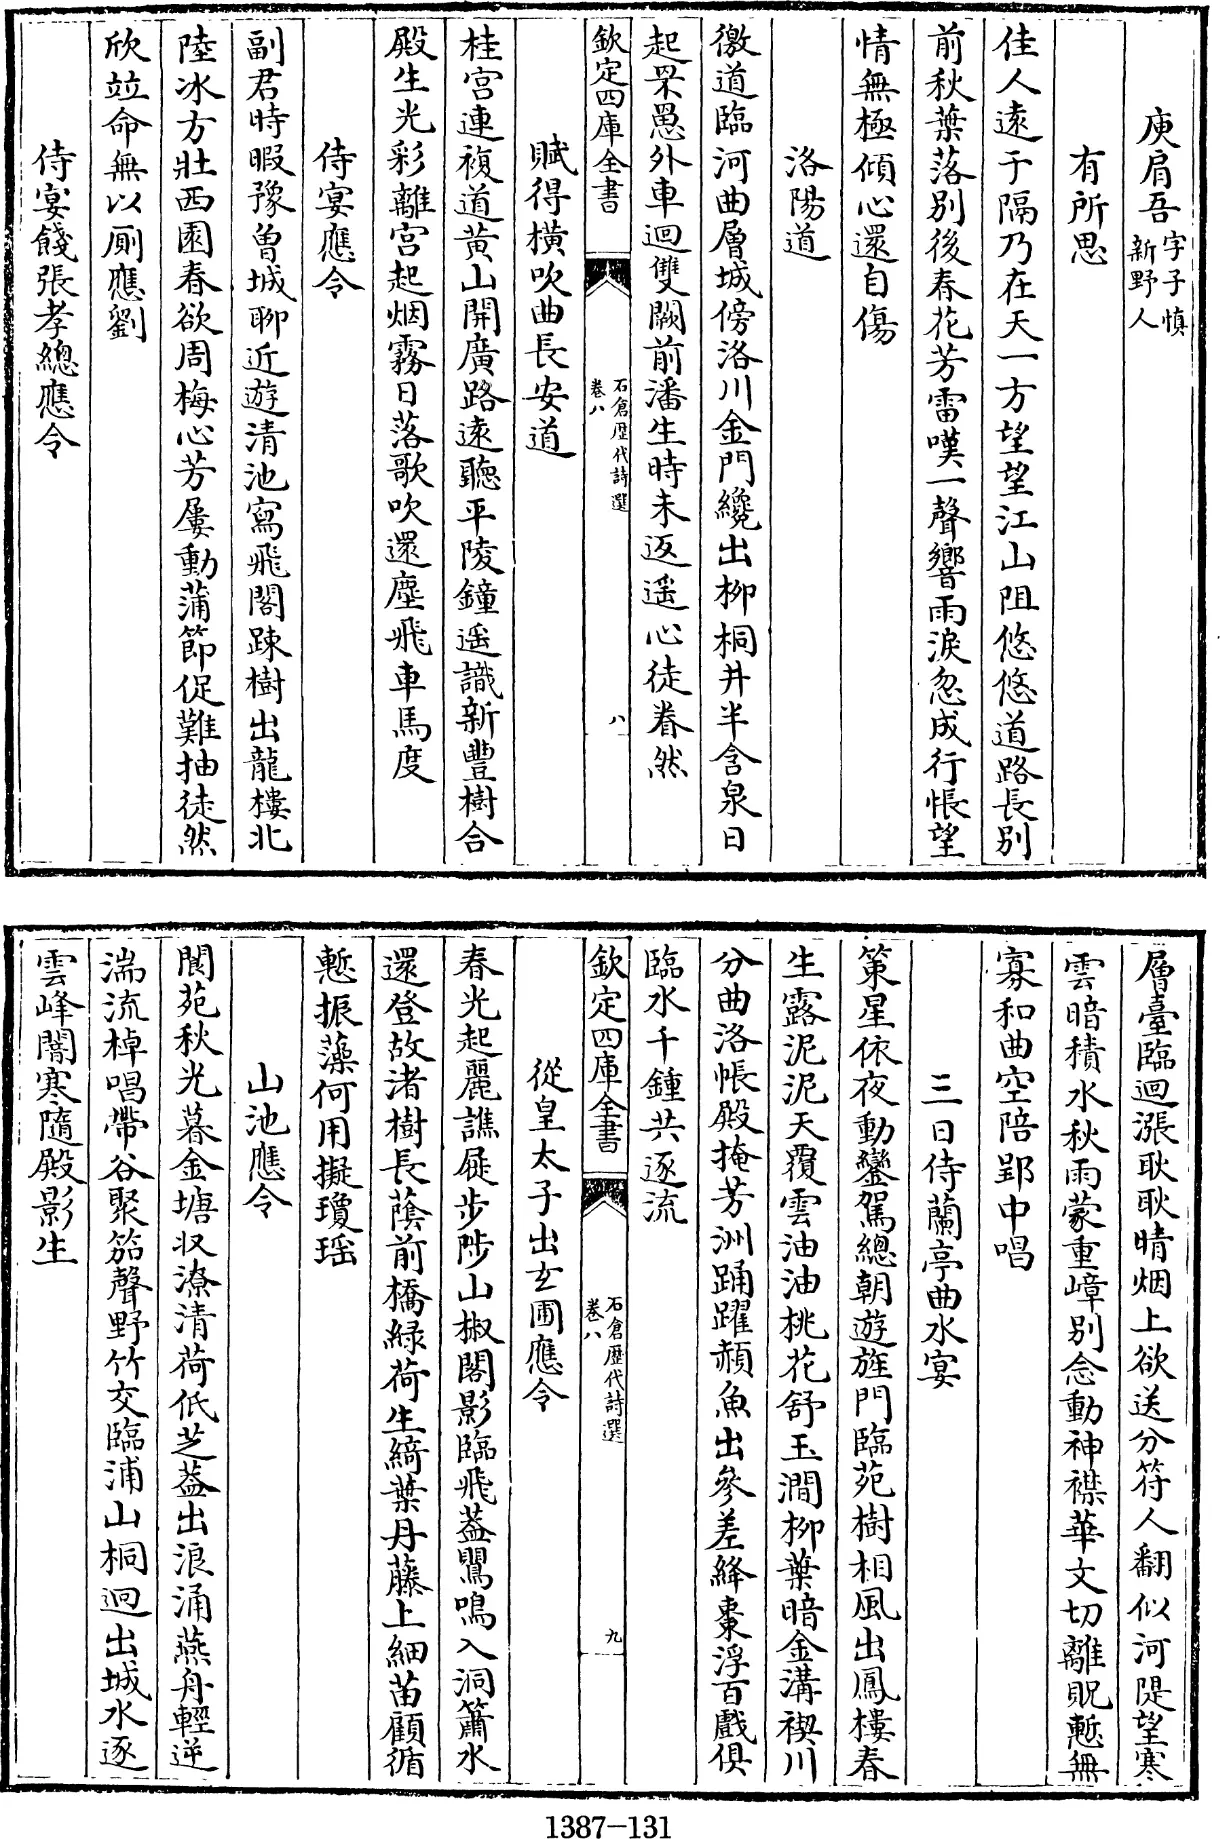 庾肩吾字子慎新野人
有所思
佳人遠于隔乃在天一方望望江山阻悠悠道路長別
前秋葉落別後春花芳雷嘆一聲響雨淚忽成行悵望
情無極傾心還自傷
洛陽道
徼道臨河曲層城傍洛川金門纔出柳桐井半含泉日
起罘罳外車迴雙闕前潘生時未返遥心徒眷然
欽定四庫全書
石倉歴代詩選
卷八
八
賦得横吹曲長安道
桂宫連複道黄山開廣路遠聽平陵鐘遥識新豐樹合
殿生光彩離宫起烟霧日落歌吹還塵飛車馬度
侍宴應令
副君時暇豫曾城聊近遊清池寫飛閣踈樹出龍樓北
陸冰方壯西園春欲周梅心芳屢動蒲節促難抽徒然
欣竝命無以厠應劉
侍宴餞張孝總應令
層臺臨迥漲耿耿晴烟上欲送分符人翻似河隄望寒
雲暗積水秋雨蒙重嶂别念動神襟華文切離貺慙無
寡和曲空陪郢中唱
三日侍蘭亭曲水宴
策星依夜動鑾駕總朝遊旌門臨苑樹相風出鳳樓春
生露泥泥天覆雲油油桃花舒玉澗柳葉暗金溝禊川
分曲洛帳殿掩芳洲踊躍頳魚出參差絳棗浮百戲俱
臨水千鍾共逐流
欽定四庫全書
石倉歴代詩選
卷八
九
從皇太子出玄圃應令
春光起麗譙屣步陟山椒閣影臨飛葢鸎鳴入洞簫水
還登故渚樹長蔭前橋緑荷生綺葉丹藤上細苗顧循
慙振藻何用擬瓊瑶
山池應令
閬苑秋光暮金塘収潦清荷低芝葢出浪涌燕舟輕逆
湍流棹唱帶谷聚笳聲野竹交臨浦山桐迥出城水逐
雲峰闇寒隨殿影生
1387-131